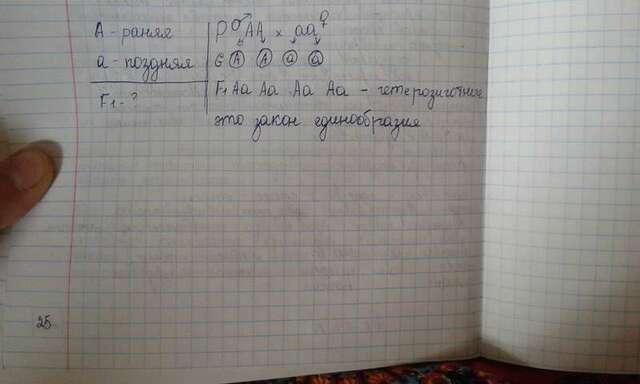 A - ранняя
a - поздняя
F₁ - ?
P ♂AA × aa♀
G A A a a
F₁ Aa Aa Aa Aa - гетерозиготное
это закон единообразия
25